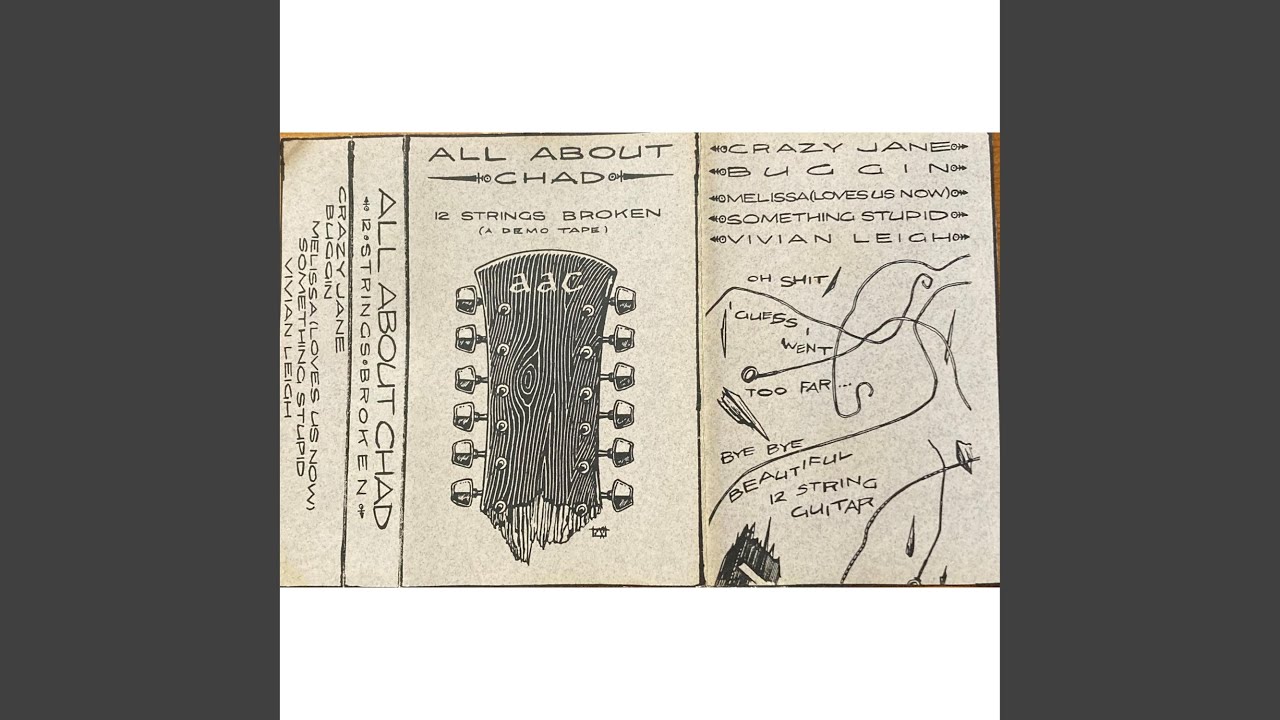 CRAZY JANE
BUGGIN
MELISSA (LOVES US NOW)
SOMETHING STUPID
VIVIAN LEIGH
ALL ABOUT CHAD
12•STRINGS•BROKEN
ALL ABOUT
CHAD
12 STRINGS BROKEN
(A DEMO TAPE)
aac
CRAZY JANE
BUGGIN
MELISSA(LOVES US NOW)
SOMETHING STUPID
VIVIAN LEIGH
OH SHIT!
I GUESS
I WENT
TOO FAR...
BYE BYE
BEAUTIFUL
12 STRING
GUITAR